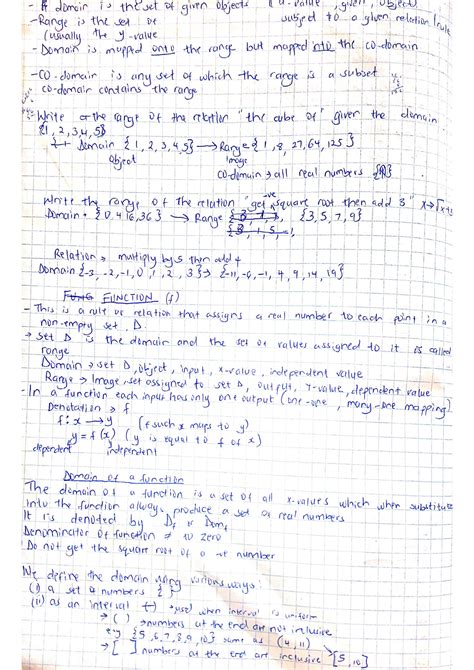 - A domain is the set of given objects (x-value, given, object)
- Range is the set of subject to a given relation/rule
(usually the y-value
- Domain is mapped onto the range but mapped into the co-domain
- CO-domain is any set of which the range is a subset
co-domain contains the range
- Write the range of the relation "the cube of" given the domain
{1, 2, 3, 4, 5}
Domain {1, 2, 3, 4, 5} → Range {1, 8, 27, 64, 125}
Object Image
co-domain → all real numbers {R}
Write the range of the relation "get +ve square root then add 3" x→√x+3
Domain = {0, 4, 16, 36} → Range {3, 5, 7, 9}
Relation → multiply by 5 then add 4
Domain {-3, -2, -1, 0, 1, 2, 3} → {-11, -6, -1, 4, 9, 14, 19}
FUNCTION (f)
- This is a rule or relation that assigns a real number to each point in a
non-empty set, D.
→ Set D is the domain and the set of values assigned to it is called
range
Domain → set D, object, input, x-value, independent value
Range → Image, set assigned to set D, output, Y-value, dependent value
- In a function each input has only one output (one-one, many-one mapping)
Denotation → f
f: x → y (f such x maps to y)
y = f(x) (y is equal to f of x)
dependent independent
Domain of a function
The domain of a function is a set of all x-values which when substitute
into the function always produce a set of real numbers
It is denoted by Df or Domf
Denominator of function ≠ to zero
Do not get the square root of a -ve number
We define the domain using various ways:
(i) a set of numbers { }
(ii) as an interval (-) → used when interval is uniform
→ ( ) → numbers at the end are not inclusive
eg {5, 6, 7, 8, 9, 10} same as (4, 11)
→ [ ] numbers at the end are inclusive [5, 10]